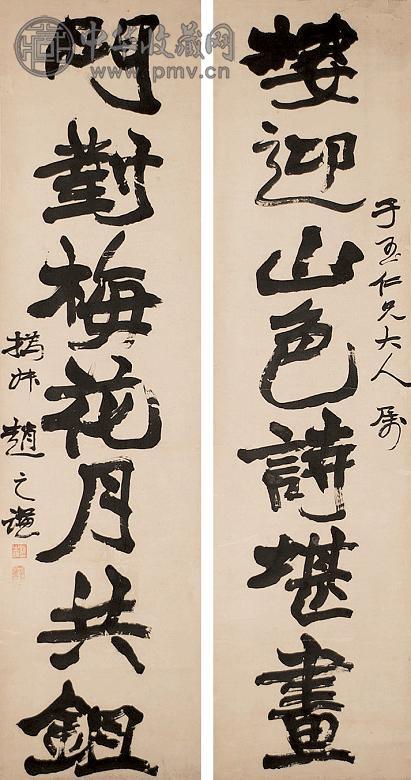 中华收藏网
www.pmv.cn
樓迎山色詩堪畫
子玉仁兄大人属
門對梅花月共鉏
撝叔趙之謙